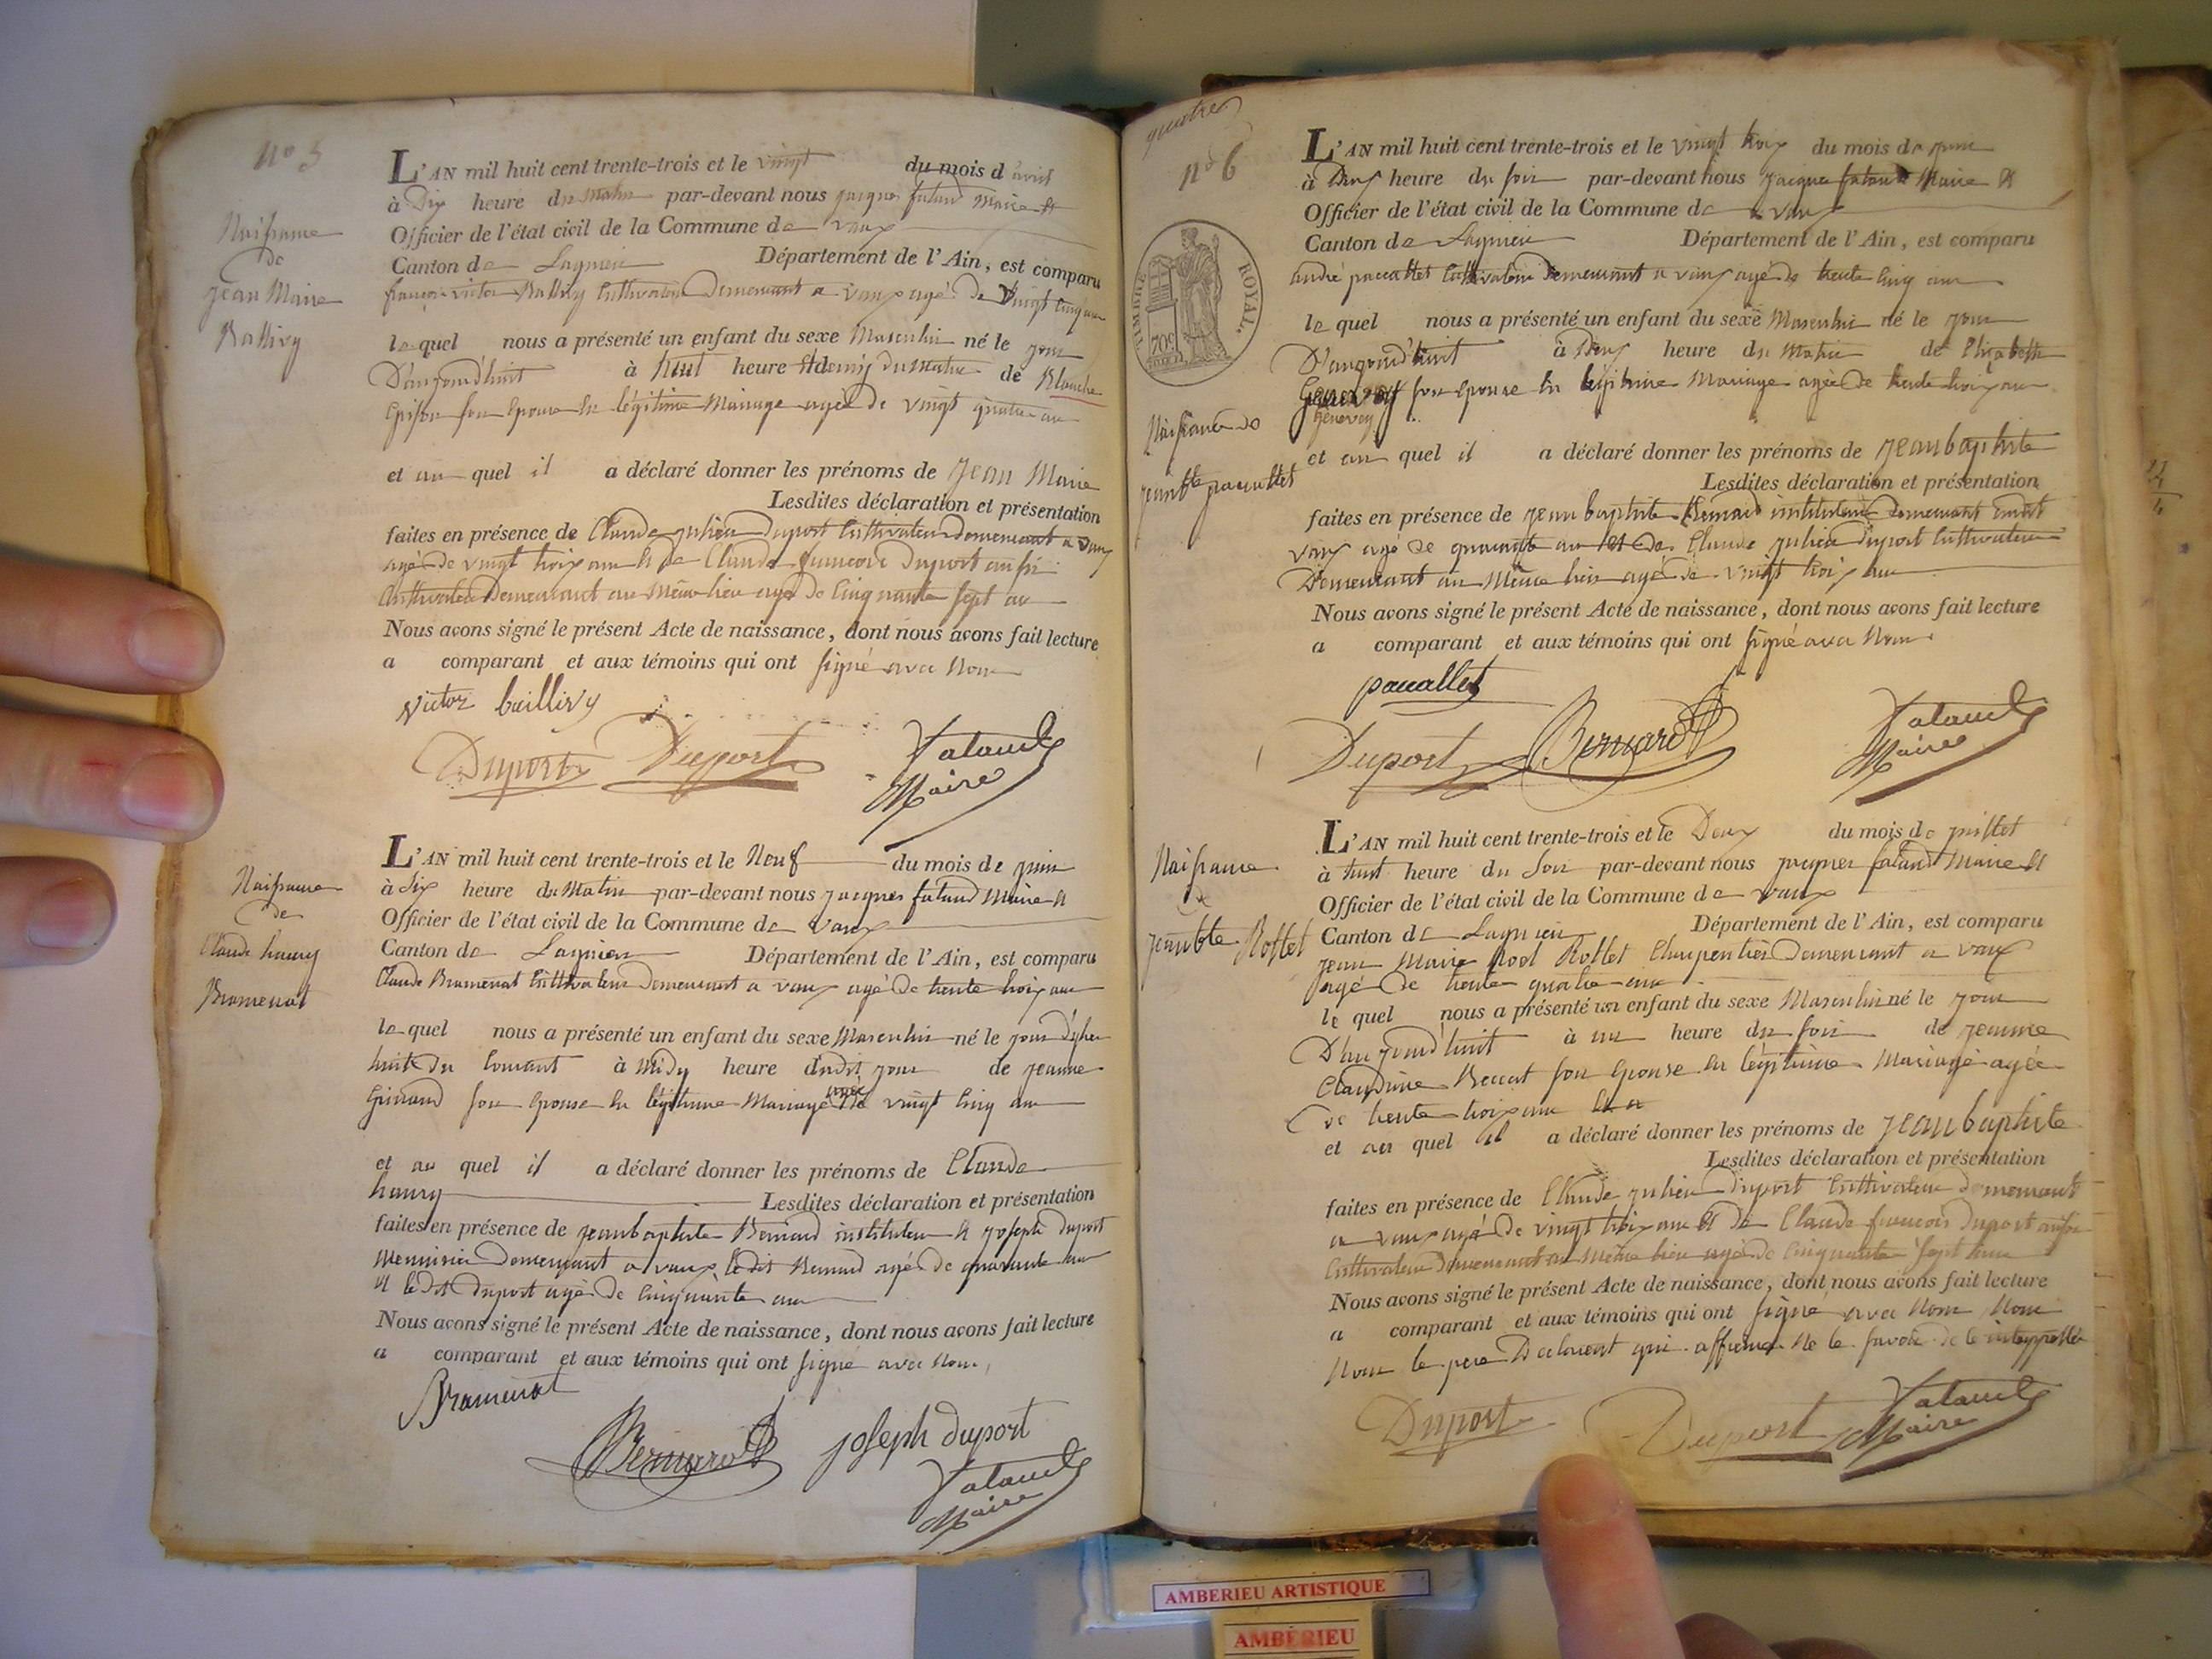 n° 5
Naissance
de
Jean Marie
Ballivy
L'AN mil huit cent trente-trois et le vingt du mois d avril
à Dix heure du Matin par-devant nous jacques falaud Maire et
Officier de l'état civil de la Commune de vaux
Canton de Lagnieu Département de l'Ain, est comparu
françois victor Ballivy Cultivateur Demeurant a vaux agé de vingt cinq ans
le quel nous a présenté un enfant du sexe Masculin né le jour
D'aujourd'huit à huit heure et demij du Matin de Blanche
Grison son Epouse en légitime Mariage agée de vingt quatre ans
et au quel il a déclaré donner les prénoms de Jean Marie
Lesdites déclaration et présentation
faites en présence de Claude julien Duport Cultivateur demeurant a vaux
agé de vingt troix ans et de Claude françois Duport aussi
Cultivateur Demeurant au même lieu agé de Cinquante sept ans
Nous avons signé le présent Acte de naissance, dont nous avons fait lecture
a comparant et aux témoins qui ont signé avec Nous
victor baillivy
Duport Duport falaud
Maire
Naissance
de
Claude haury
Bramenat
L'AN mil huit cent trente-trois et le Neuf du mois de juin
à Six heure du Matin par-devant nous jacques falaud Maire et
Officier de l'état civil de la Commune de vaux
Canton de Lagnieu Département de l'Ain, est comparu
Claude Bramenat Cultivateur demeurant a vaux agé de trente troix ans
le quel nous a présenté un enfant du sexe Masculin né le jour d'hier
huit du Courant à Midy heure dudit jour de jeanne
Guinand son Epouse en légitime Mariage agée de vingt cinq ans
et au quel il a déclaré donner les prénoms de Claude
haury Lesdites déclaration et présentation
faites en présence de jeanbaptiste Bernard instituteur et joseph duport
Menuisier demeurant a vaux ledit Bernard agé de quarante ans
et ledit duport agé de Cinquante ans
Nous avons signé le présent Acte de naissance, dont nous avons fait lecture
a comparant et aux témoins qui ont signé avec Nous,
Bramenat
Bernard joseph duport
falaud
Maire
quatre
n° 6
TIMBRE ROYAL.
70c
Naissance de
jeanbte pacallet
L'AN mil huit cent trente-trois et le vingt troix du mois de juin
à Deux heure du soir par-devant nous jacques falaud Maire et
Officier de l'état civil de la Commune de vaux
Canton de Lagnieu Département de l'Ain, est comparu
andré pacallet Cultivateur Demeurant a vaux agé de trente cinq ans
le quel nous a présenté un enfant du sexe Masculin né le jour
D'aujourd'huit à Deux heure du Matin de Elizabeth
genevey son Epouse en légitime Mariage agée de trente troix ans
genevey
et au quel il a déclaré donner les prénoms de jeanbaptiste
Lesdites déclaration et présentation
faites en présence de jeanbaptiste Bernard instituteur demeurant audit
vaux agé de quarante ans et de Claude julien Duport Cultivateur
Demeurant au Même lieu agé de vingt troix ans
Nous avons signé le présent Acte de naissance, dont nous avons fait lecture
a comparant et aux témoins qui ont signé avec Nous
pacallet
Duport Bernard falaud
Maire
Naissance
de
jeanbte Rollet
L'AN mil huit cent trente-trois et le Deux du mois de juillet
à huit heure du Soir par-devant nous jacques falaud Maire et
Officier de l'état civil de la Commune de vaux
Canton de Lagnieu Département de l'Ain, est comparu
jean Marie Rollet Charpentier Demeurant a vaux
agé de trente quatre ans
le quel nous a présenté un enfant du sexe Masculin né le jour
D'aujourd'huit à une heure du soir de jeanne
Claudine Beccat son Epouse en légitime Mariage agée
de trente troix ans
et au quel il a déclaré donner les prénoms de jeanbaptiste
Lesdites déclaration et présentation
faites en présence de Claude julien duport Cultivateur demeurant
a vaux agé de vingt troix ans et de Claude francois duport aussi
Cultivateur demeurant au même lieu agé de Cinquante sept ans
Nous avons signé le présent Acte de naissance, dont nous avons fait lecture
a comparant et aux témoins qui ont signé avec Nous Non
Nom le pere Declarant qui affirmer ne le savoir de le
Duport Duport falaud
Maire
AMBERIEU ARTISTIQUE
AMBERIEU